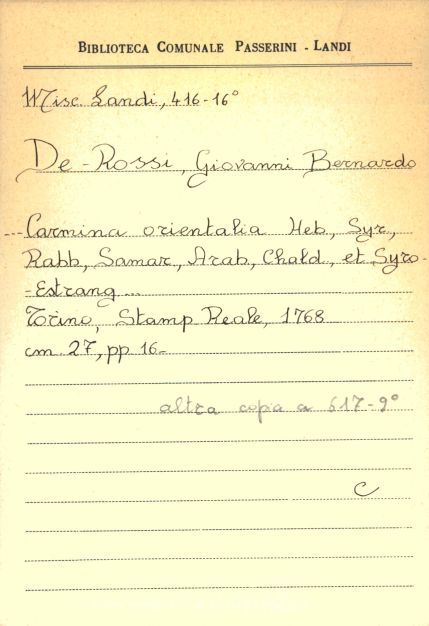 BIBLIOTECA COMUNALE PASSERINI - LANDI
Misc. Landi, 416-16°
De-Rossi, Giovanni Bernardo
...Carmina orientalia Heb., Syr.,
Rabb., Samar., Arab., Chald., et Syro-
-Estrang...
Torino, Stamp. Reale, 1768
cm. 27, pp. 16-
altra copia a 617-9°
C